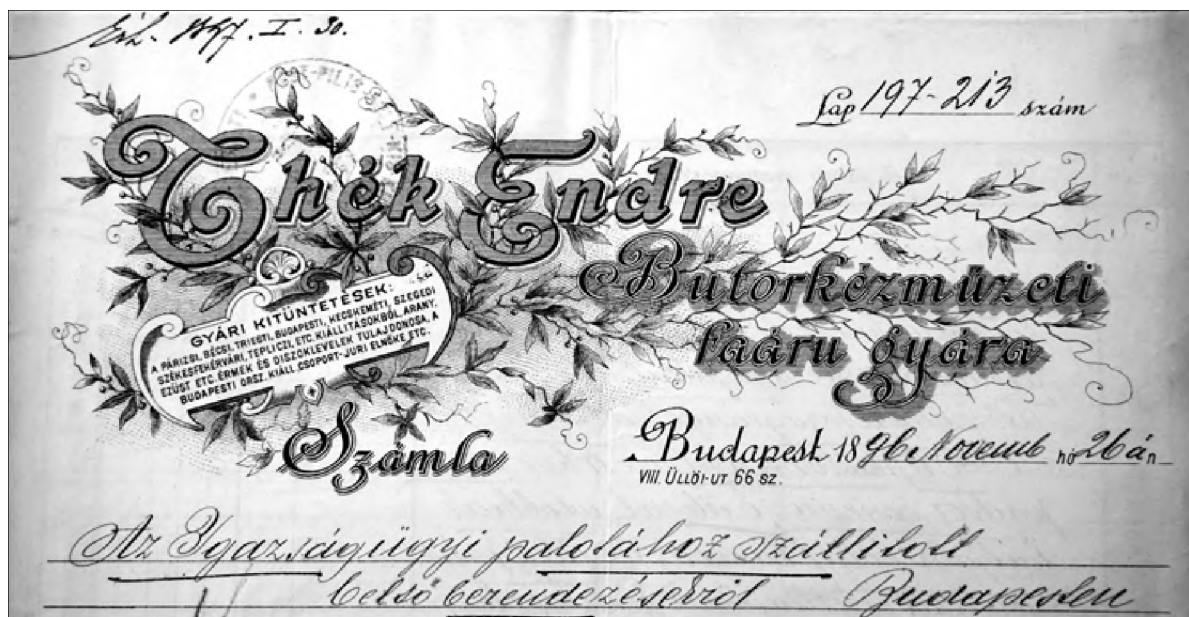 Érk. 1897. I. 30.
Lap 197-213 szám
Thék Endre
Butorkézműzeti
faáru gyára
GYÁRI KITÜNTETÉSEK:
A PÁRIZSI, BÉCSI, TRIESTI, BUDAPESTI, KECSKEMÉTI, SZEGEDI
SZÉKESFEHÉRVÁRI, TEPLICZI, ETC. KIÁLLITÁSOKBÓL, ARANY,
EZÜST ETC. ÉRMEK ÉS DISZOKLEVELEK TULAJDONOSA, A
BUDAPESTI ORSZ. KIÁLL. CSOPORT-JURI ELNÖKE ETC.
Számla
Budapest 1896 Novemb hó 26 án
VIII. ÜLLŐI-UT 66 SZ.
Az Igazságügyi palotához szállitott
belső berendezésekről Budapesten